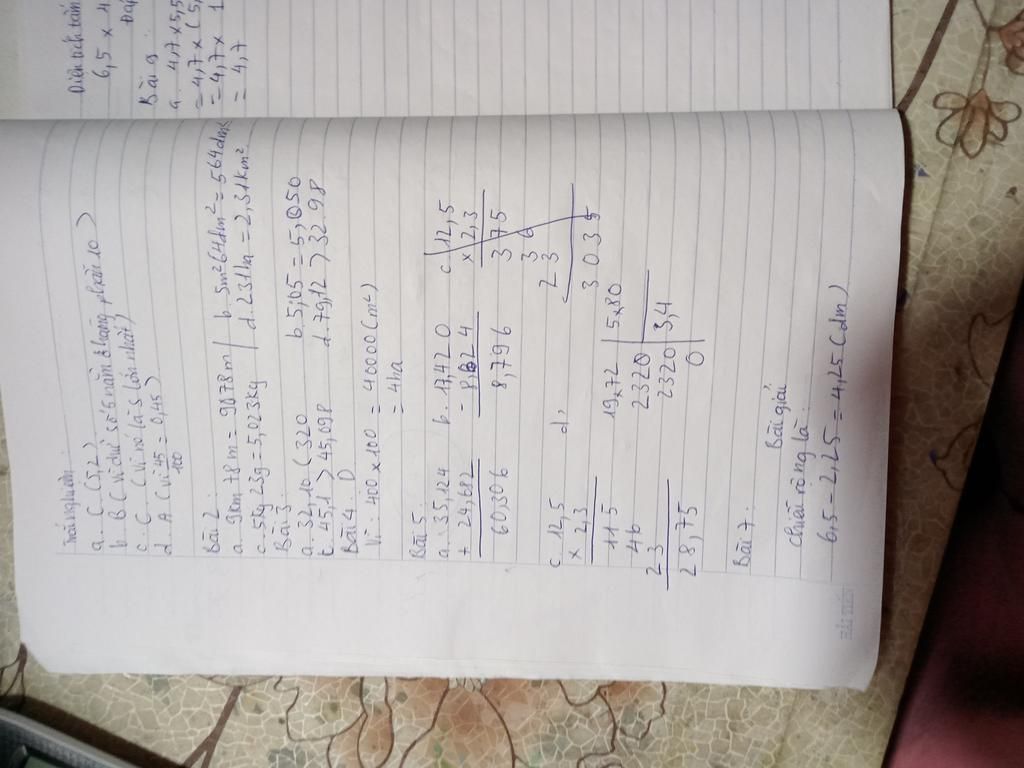 Trắc nghiệm:
a. C (5,2)
b. B (vì chữ số 6 nằm ở hàng phần 10)
c. C (vì nó là số lớn nhất)
d. A (vì 45/100 = 0,45)
Bài 2:
a. 9km 78m = 9078m | b. 5m² 64dm² = 564dm²
c. 5kg 23g = 5,023kg | d. 231ha = 2,31km²
Bài 3:
a. 32,10 < 320 b. 5,05 = 5,050
c. 45,1 > 45,098 d. 79,12 > 32,98
Bài 4. D
Vì: 400 x 100 = 40000 (m²)
= 4ha
Bài 5
a. 35,124 b. 17,420 c. 12,5
+ 24,682 - 8,624 x 2,3
60,306 8,796 375
36
23
3035
c. 12,5 d,
x 2,3 19,72 | 5,80
115 2320
46 2320 3,4
23 0
28,75
Bài 7:
Bài giải
Chiều rộng là:
6,5 - 2,25 = 4,25 (dm)
Diện tích tấm
6,5 x 4
Đáp
Bài 9:
a. 4,7 x 5,5
= 4,7 x (5,
= 4,7 x 1
= 4,7
HẢI TIẾN